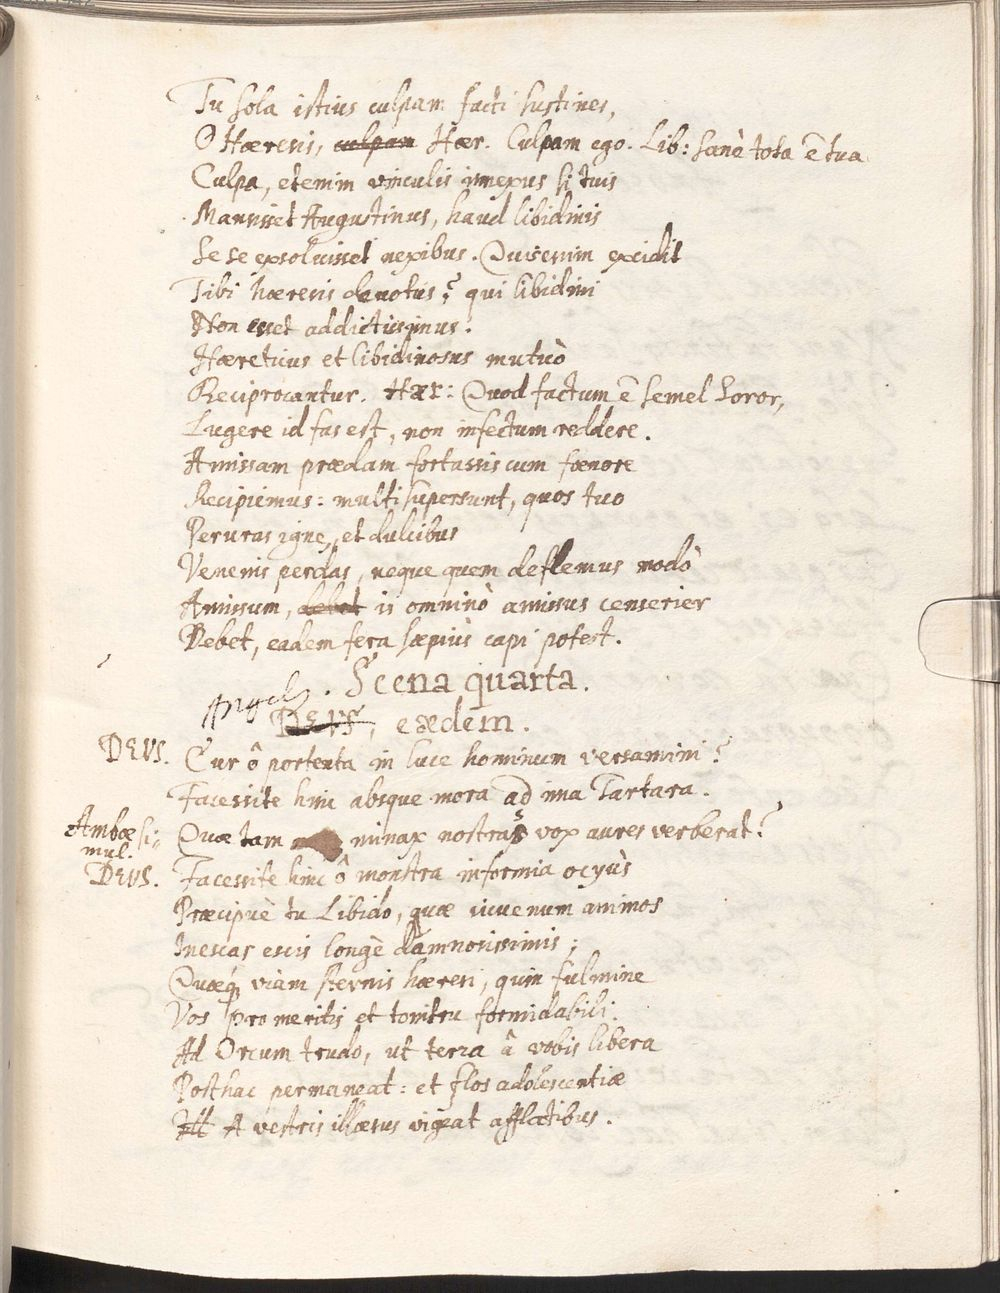 Tu sola istius culpam facti sustines,
O Hæresis, culpam Hær. Culpam ego. Lib: Sanè tota ē tua
Culpa, etenim vinculis innexus si tuis
Mansisset Augustinus, haud libidinis
Se se exsolvisset nexibus. Quis enim excidit
Tibi hæresis devotus? qui libidini
Non esset addictissimus?
Hæreticus et libidinosus mutuò
Reciprocantur. Hær: Quod factum ē semel Soror,
Lugere id fas est, non infectum reddere.
Amissam prædam fortassis cum fœnore
Recipiemus: multi supersunt, quos tuo
Peruras igne, et dulcibus
Venenis perdas, neque quem deflemus modò
Amissum, debet is omninò amissus censerier
Debet, eadem fera sæpiùs capi potest.
Scena quarta.
Angel9.
DEVS, eædem.
DEVS. Cur ô portenta in luce hominum versamini?
Facessite hinc absque mora ad ima Tartara.
Ambæ si=
mul. Quæ tam minax nostras vox aures verberat?
DEVS. Facessite hinc ô monstra informia ocyùs
Præcipuè tu Libido, quæ iuvenum animos
Inescas escis longè damnosissimis;
Quæq3 viam sternis hæresi, quin fulmine
Vos pro meritis et tonitru formidabili.
Ad Orcum trudo, ut terra â vobis libera
Posthac permaneat: et flos adolescentiæ
A vestris illæsus vigeat afflatibus.